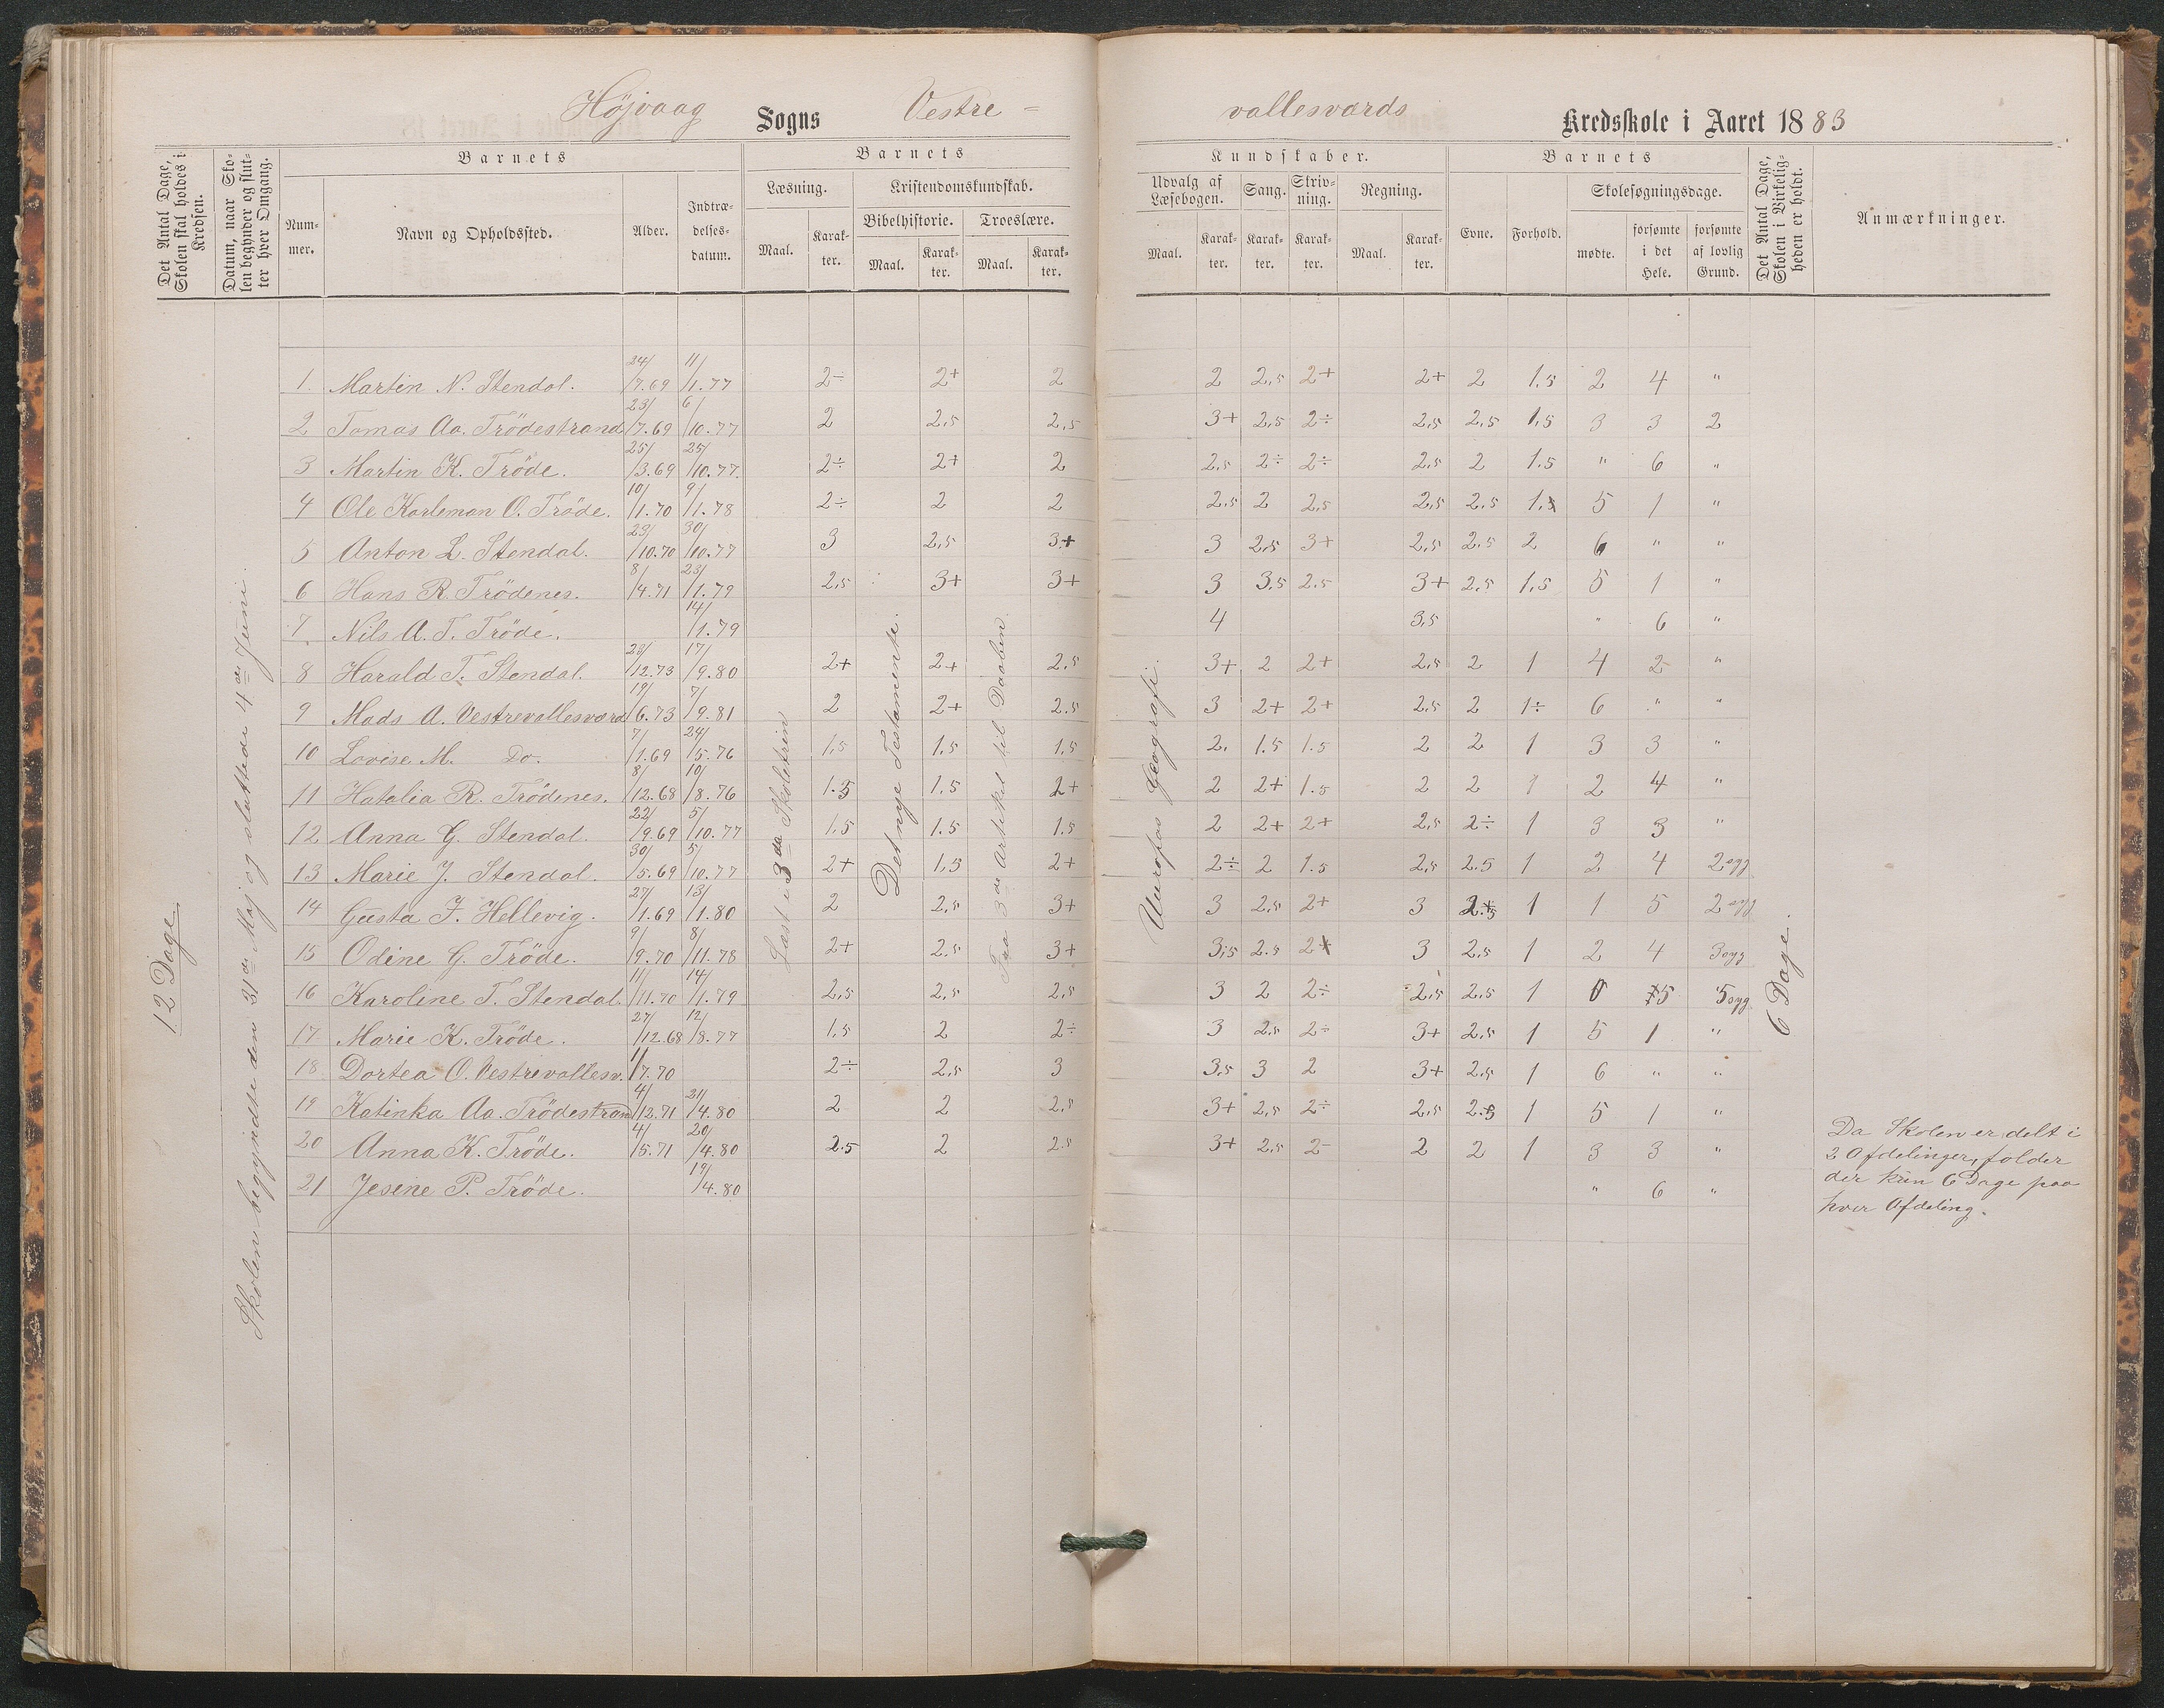 Höjvaag Sogns Vestre- vallesværds Kredsskole i Aaret 1883
Det Antal Dage, Skolen skal holdes i Kredsen.
Datum, naar Skolen begynder og slutter hver Omgang.
Barnets
Nummer.
Navn og Opholdssted.
Alder.
Indtrædelsesdatum.
Barnets
Læsning.
Maal.
Karakter.
Kristendomskundskab.
Bibelhistorie.
Maal.
Karakter.
Troeslære.
Maal.
Karakter.
Kundskaber.
Udvalg af Læsebogen.
Maal.
Karakter.
Sang.
Karakter.
Skrivning.
Karakter.
Regning.
Maal.
Karakter.
Barnets
Evne.
Forhold.
Skolesøgningsdage.
mødte.
forsømte i det Hele.
forsømte af lovlig Grund.
Det Antal Dage, Skolen i Virkeligheden er holdt.
Anmærkninger.
12 Dage
Skolen begyndte den 31de Maj og sluttede 4de Juni.
Læst i 3da Skoletrin
Det nye Testamente.
Fra 3de Artikel til Daaben
Europas Geografi.
6 Dage.
1. Martin N. Stendal. 24/7.69 11/1.77 2÷ 2+ 2 2 2,5 2+ 2+ 2 1.5 2 4 "
2 Tomas Aa. Trödestrand 23/7.69 6/10.77 2 2,5 2,5 3+ 2,5 2÷ 2,5 2,5 1,5 3 3 2
3 Martin K. Tröde. 25/3.69 25/10.77. 2÷ 2+ 2 2,5 2÷ 2÷ 2,5 2 1.5 " 6 "
4 Ole Karleman O. Tröde. 10/1.70 9/1.78 2÷ 2 2 2,5 2 2,5 2,5 2.5 1.5 5 1 "
5 Anton L. Stendal. 23/10.70 30/10.77 3 2,5 3+ 3 2,5 3+ 2,5 2.5 2 6 " "
6 Hans R. Trödenes. 8/4.71 23/1.79 2,5 3+ 3+ 3 3.5 2.5 3+ 2,5 1,5 5 1 "
7 Nils A. T. Tröde. 14/1.79 4 3,5 " 6 "
8 Harald T. Stendal. 28/12.73 17/9.80 2+ 2+ 2.5 3+ 2 2+ 2,5 2 1 4 2 "
9 Mads A. Vestrevallesværd 19/6.73 7/9.81 2 2+ 2.5 3 2+ 2+ 2,5 2 1÷ 6 " "
10 Lovise M. Do. 7/1.69 24/5.76 1,5 1.5 1.5 2. 1.5 1.5 2 2 1 3 3 "
11 Hatalia R. Trödenes. 8/12.68 10/8.76 1.5 1.5 2+ 2 2+ 1.5 2 2 1 2 4 "
12 Anna G. Stendal. 22/9.69 5/10.77 1,5 1.5 1.5 2 2+ 2+ 2,5 2÷ 1 3 3 "
13 Marie J. Stendal. 30/5.69 5/10.77 2+ 1,5 2+ 2÷ 2 1.5 2,5 2.5 1 2 4 2 syg
14 Gusta F. Hellevig. 27/1.69 13/1.80 2 2,5 3+ 3 2,5 2+ 3 2.5 1 1 5 2 syg
15 Odine G. Tröde. 9/9.70 8/11.78 2+ 2.5 3+ 3,5 2.5 2+ 3 2,5 1 2 4 3 syg
16 Karoline T. Stendal. 11/11.70 14/1.79 2,5 2,5 2,5 3 2 2÷ 2,5 2,5 1 0 5 5 syg.
17. Marie K. Tröde. 27/12.68 12/8.77 1,5 2 2÷ 3 2,5 2÷ 3+ 2,5 1 5 1 "
18 Dortea O. Vestrevallesv. 1/7.70 2÷ 2,5 3 3,5 3 2 3+ 2,5 1 6 " "
19 Katinka Aa. Trödestrand 4/12.71 21/4.80 2 2 2,5 3+ 2,5 2÷ 2,5 2.5 1 5 1 "
20 Anna K. Tröde. 4/5.71 20/4.80 2.5 2 2.5 3+ 2,5 2- 2 2 1 3 3 "
21 Jesine P. Tröde. 19/4.80 " 6 "
Da Skolen er delt i
2 Afdelinger, falder
der kun 6 Dage paa
hver Afdeling.